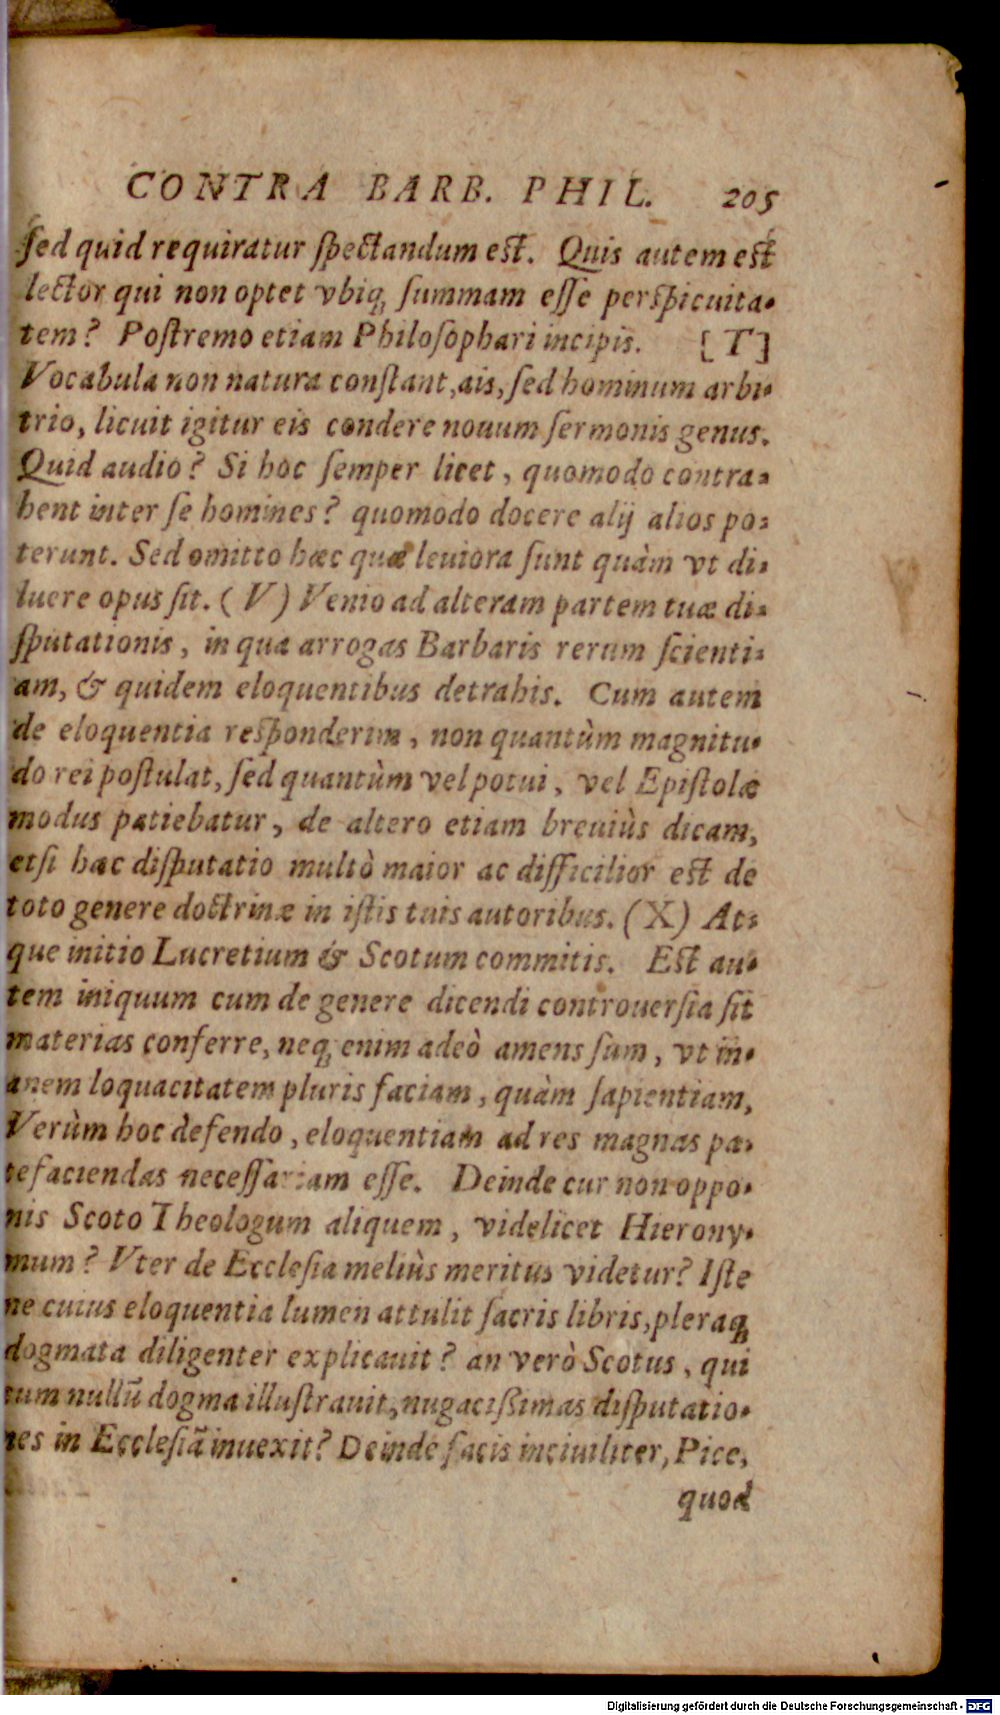 CONTRA BARB. PHIL. 205
ſed quid requiratur ſpectandum eſt. Quis autem eſt
lector qui non optet vbiq́; ſummam eſſe perſpicuita-
tem? Poſtremo etiam Philoſophari incipis. [T]
Vocabula non natura conſtant, ais, ſed hominum arbi-
trio, licuit igitur eis condere nouum ſermonis genus.
Quid audio? Si hoc ſemper licet, quomodo contra-
hent inter ſe homines? quomodo docere alij alios po-
terunt. Sed omitto hæc quæ leuiora ſunt quàm vt di-
luere opus ſit. (V) Venio ad alteram partem tuæ di-
ſputationis, in qua arrogas Barbaris rerum ſcienti-
am, & quidem eloquentibus detrahis. Cum autem
de eloquentia reſponderim, non quantùm magnitu-
do rei poſtulat, ſed quantùm vel potui, vel Epiſtolæ
modus patiebatur, de altero etiam breuiùs dicam,
etſi hæc diſputatio multò maior ac difficilior eſt de
toto genere doctrinæ in iſtis tuis autoribus. (X) At-
que initio Lucretium & Scotum commitis. Eſt au-
tem iniquum cum de genere dicendi controuerſia ſit
materias conferre, neq́; enim adeò amens ſum, vt in-
anem loquacitatem pluris faciam, quàm ſapientiam,
Verùm hoc defendo, eloquentiam ad res magnas pa-
tefaciendas neceſſariam eſſe. Deinde cur non oppo-
nis Scoto Theologum aliquem, videlicet Hierony-
mum? Vter de Eccleſia meliùs meritus videtur? Iſte
ne cuius eloquentia lumen attulit ſacris libris, pleraq́;
dogmata diligenter explicauit? an verò Scotus, qui
cum nullū dogma illuſtrauit, nugacißimas diſputatio-
nes in Eccleſiā inuexit? Deinde facis inciuiliter, Pice,
quod
Digitalisierung gefördert durch die Deutsche Forschungsgemeinschaft - DFG